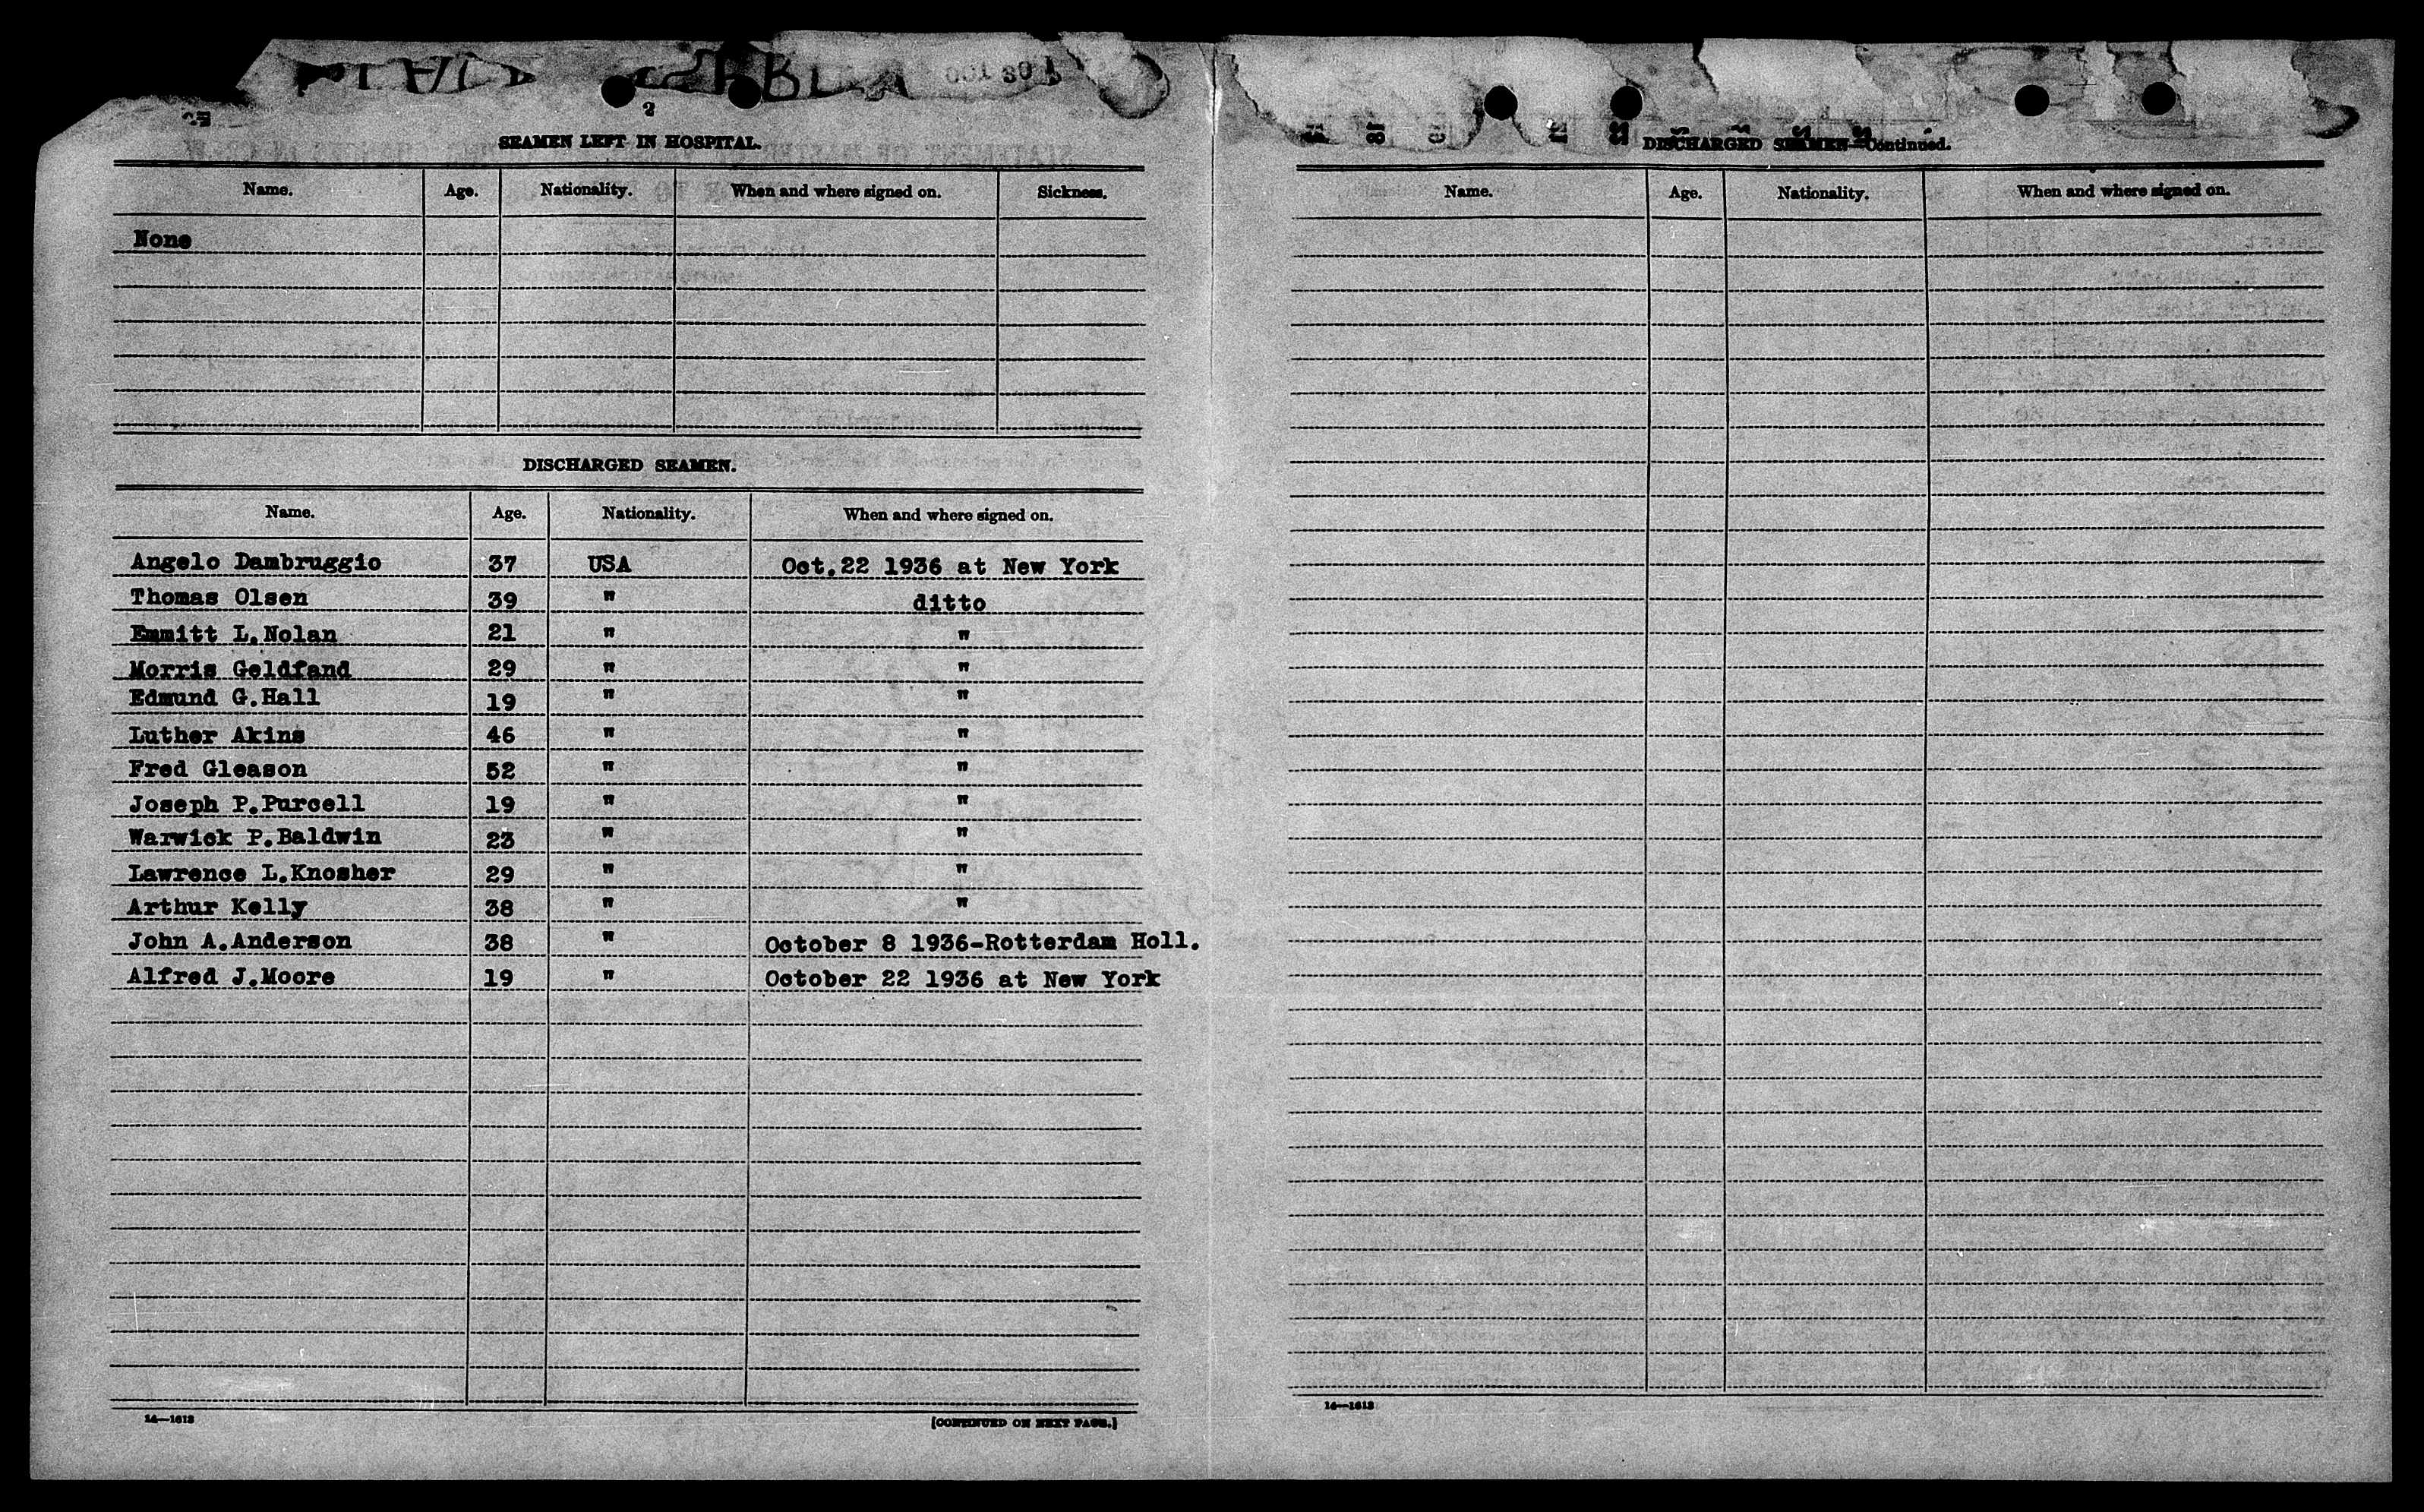 OCT 30
2
SEAMEN LEFT IN HOSPITAL.
Name. Age. Nationality. When and where signed on. Sickness.
None
DISCHARGED SEAMEN.
Name. Age. Nationality. When and where signed on.
Angelo Dambruggio 37 USA Oct.22 1936 at New York
Thomas Olsen 39 " ditto
Emmitt L.Nolan 21 " "
Morris Geldfand 29 " "
Edmund G.Hall 19 " "
Luther Akins 46 " "
Fred Gleason 52 " "
Joseph P.Purcell 19 " "
Warwick P.Baldwin 23 " "
Lawrence L.Knosher 29 " "
Arthur Kelly 38 " "
John A.Anderson 38 " October 8 1936-Rotterdam Holl.
Alfred J.Moore 19 " October 22 1936 at New York
14—1613
[CONTINUED ON NEXT PAGE.]
DISCHARGED SEAMEN—Continued.
Name. Age. Nationality. When and where signed on.
14—1613